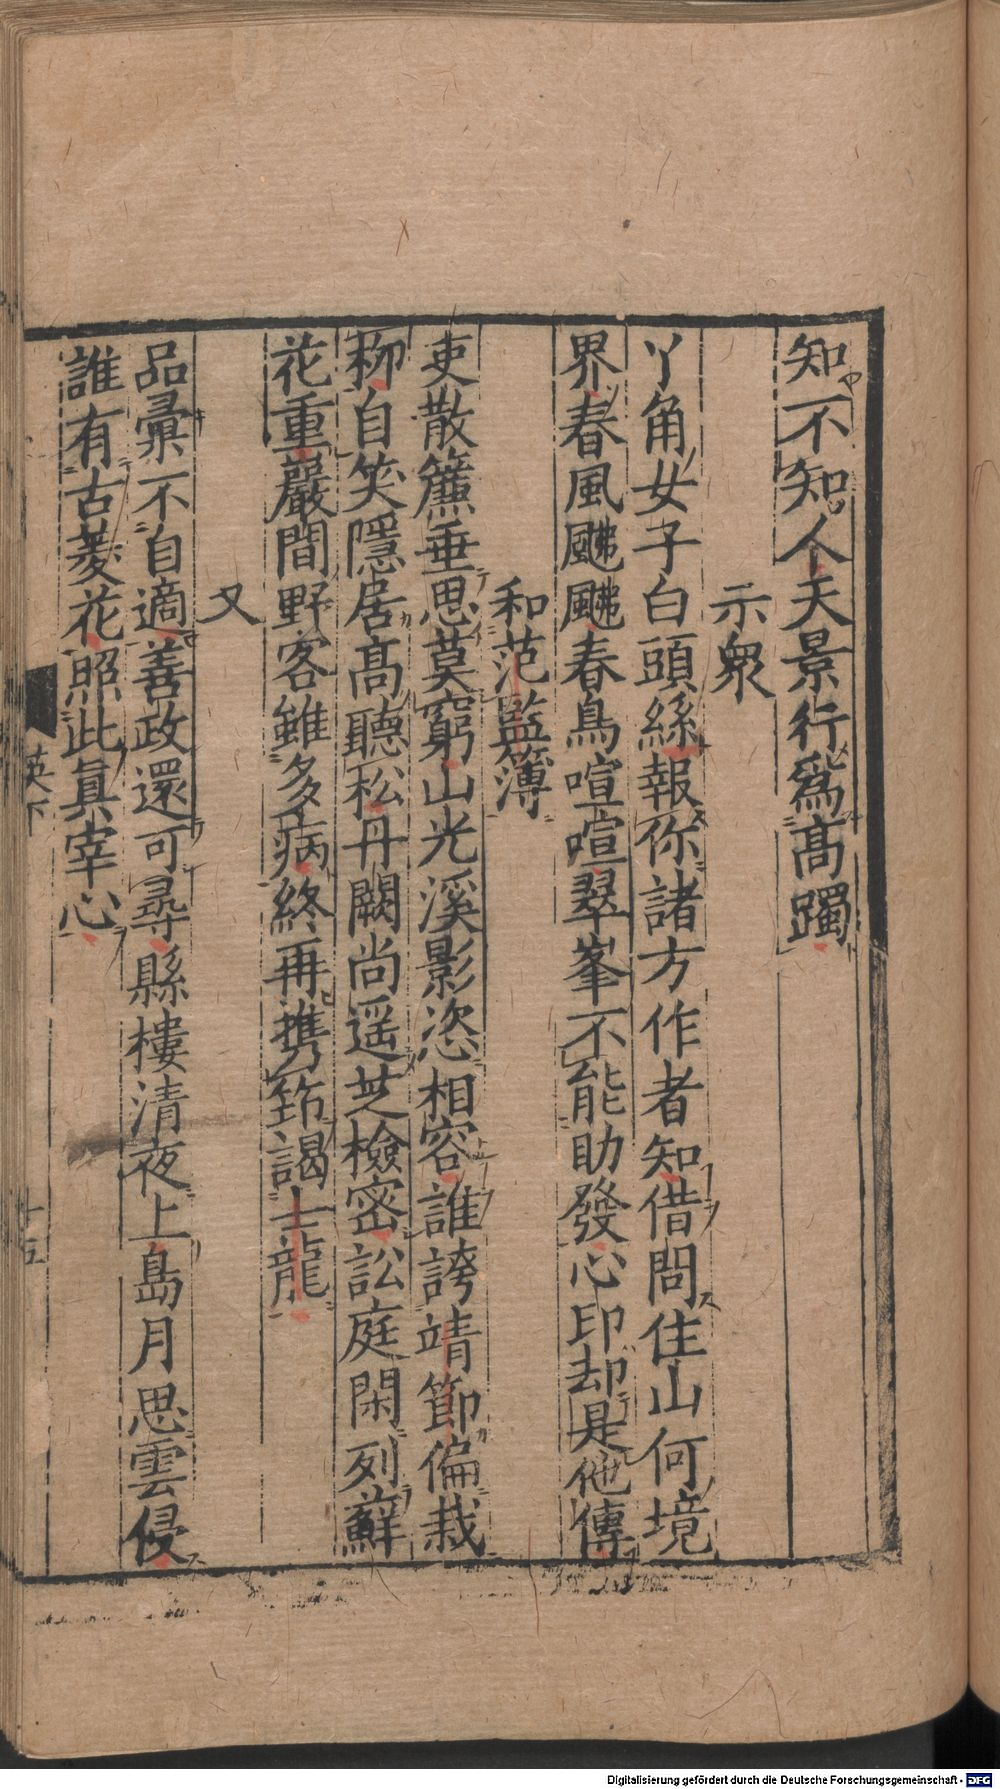 知不知人天景行爲高躅
示衆
丫角女子白頭絲報你諸方作者知借問住山何境
界春風颸颸春鳥喧喧翠峯不能助發心印却是他傳
和范監簿
吏散簾垂思莫窮山光溪影恣相容誰誇靖節偏栽
柳自笑隱居高聽松丹闕尚遥芝檢密訟庭閑列蘚
花重巖間野客雖多病終再携筇謁士龍
又
品彙不自適善政還可尋縣樓清夜上島月思雲侵
誰有古菱花照此眞宰心
英下
十五
Digitalisierung gefördert durch die Deutsche Forschungsgemeinschaft - DFG